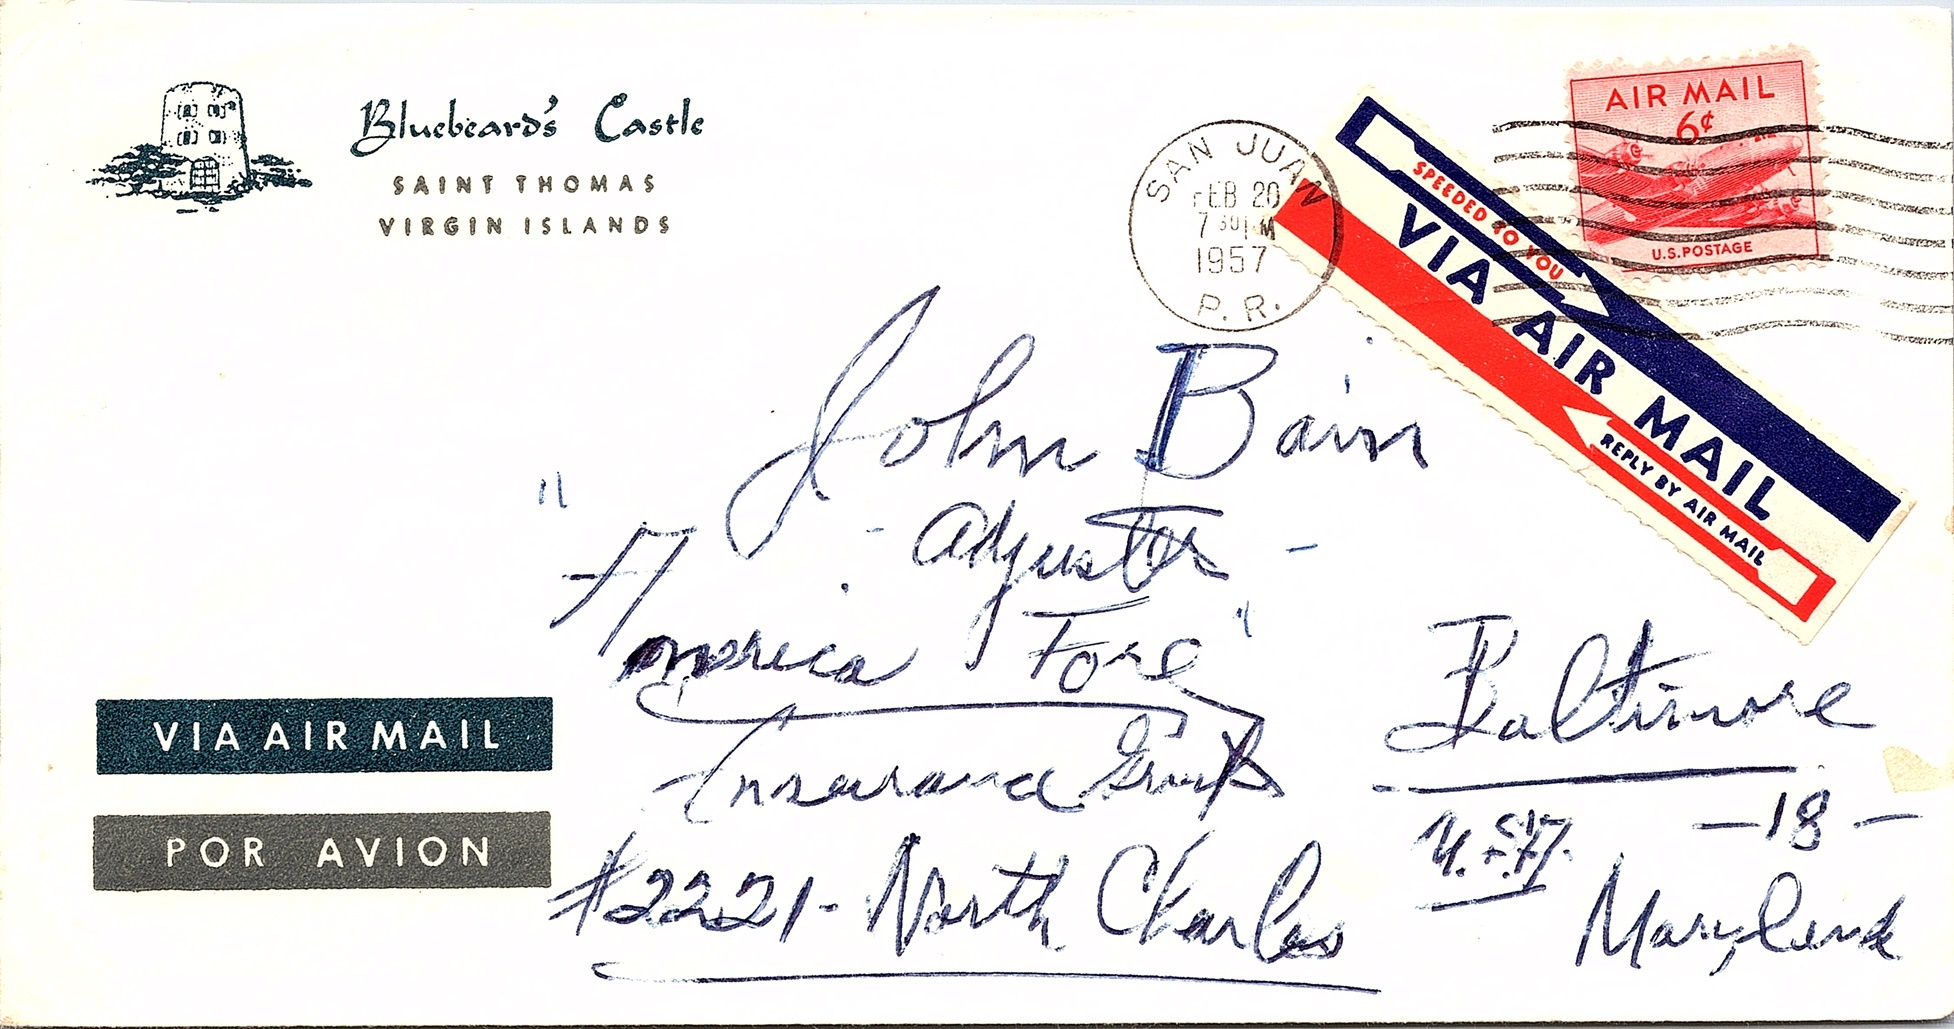 Bluebeard's Castle
SAINT THOMAS
VIRGIN ISLANDS
SAN JUAN
FEB 20
7 30 PM
1957
P. R.
SPEEDED TO YOU
VIA AIR MAIL
REPLY BY AIR MAIL
AIR MAIL
6¢
U.S. POSTAGE
John Bain
- Adjuster -
"America Fore"
Insurance Group
#2221 - North Charles
Baltimore
- 18 -
U.S.A.
Maryland
VIA AIR MAIL
POR AVION